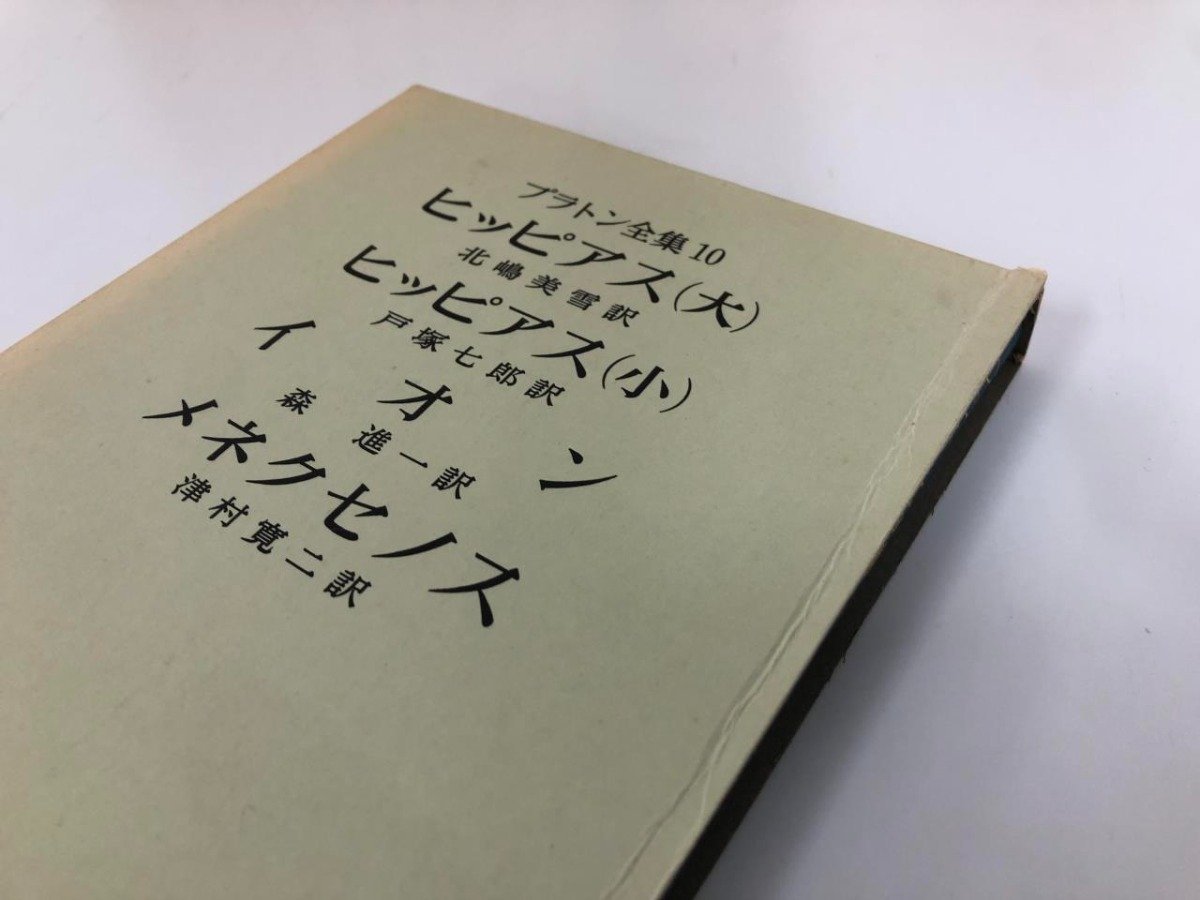 プラトン全集10
ヒッピアス(大)
北嶋美雪訳
ヒッピアス(小)
戸塚七郎訳
イオン
森進一訳
メネクセノス
津村寛二訳